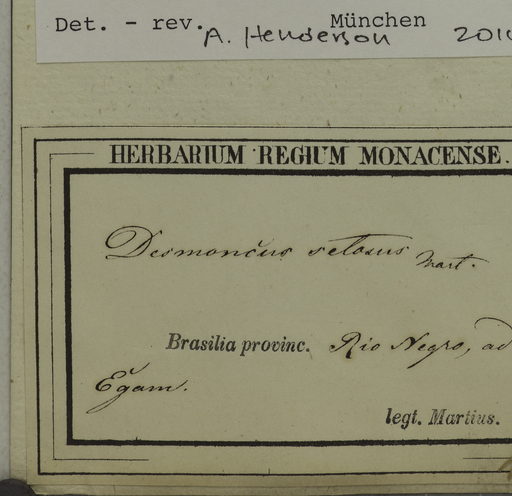 Det. - rev. München
A. Henderson 2010
HERBARIUM REGIUM MONACENSE.
Desmoncus setosus Mart.
Brasilia provinc. Rio Negro, ad
Egam.
legt. Martius.